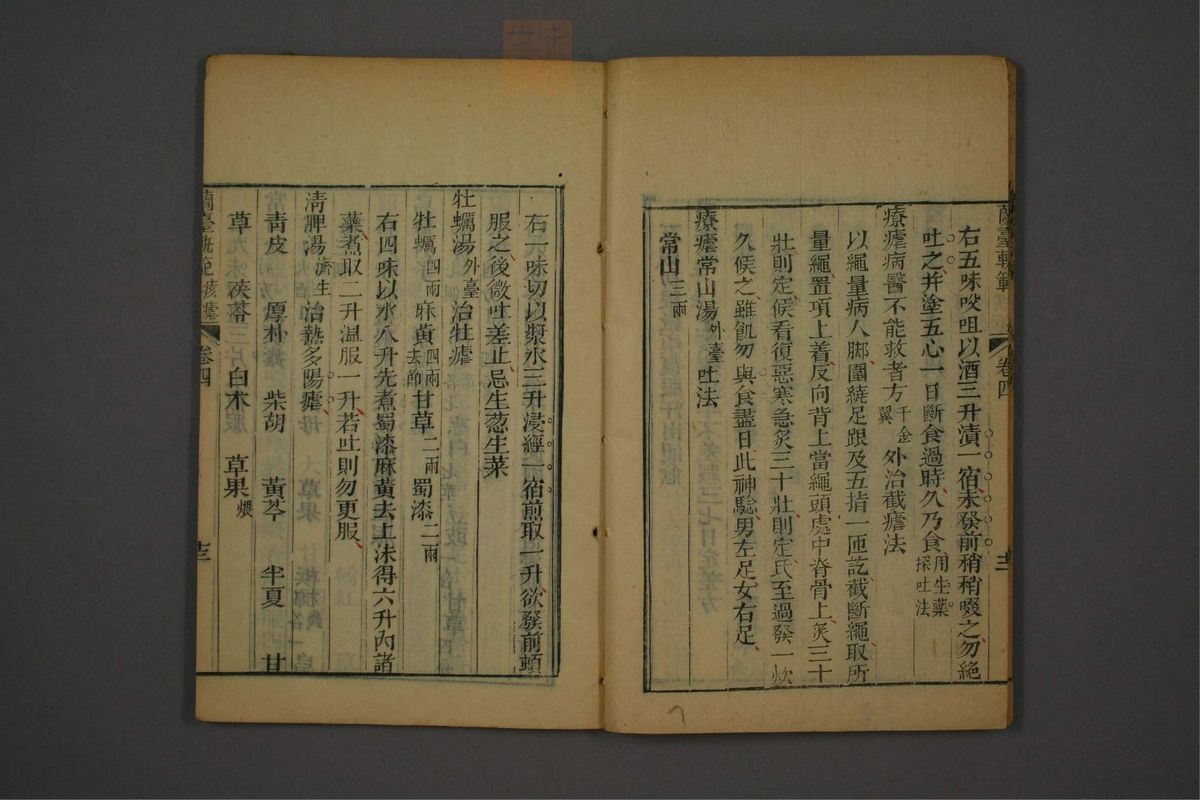 蘭臺軌範 卷四
右五味㕮咀以酒三升漬一宿未發前稍稍啜之勿絕
吐之并塗五心一日斷食過時久乃食用生藥採吐法
療瘧病醫不能救者方千金翼外治截瘧法
以繩量病人脚圍繞足跟及五指一匝訖截斷繩取所
量繩置項上着反向背上當繩頭處中脊骨上灸三十
壯則定候看復惡寒急灸三十壯則定氐至過發一炊
久候之雖飢勿與食盡日此神驗男左足女右足
療瘧常山湯外臺吐法
常山三兩
右一味切以漿水三升浸經一宿煎取一升欲發前頓
服之後微吐差止忌生葱生菜
牡蠣湯外臺治牡瘧
牡蠣四兩 麻黃四兩去節 甘草二兩 蜀漆二兩
右四味以水八升先煮蜀漆麻黃去上沫得六升內諸
藥煮取二升溫服一升若吐則勿更服
淸脾湯濟生治熱多陽瘧
靑皮 厚朴 柴胡 黃芩 半夏 甘
草 茯苓 白术 草果煨
蘭臺軌範 痎瘧 卷四